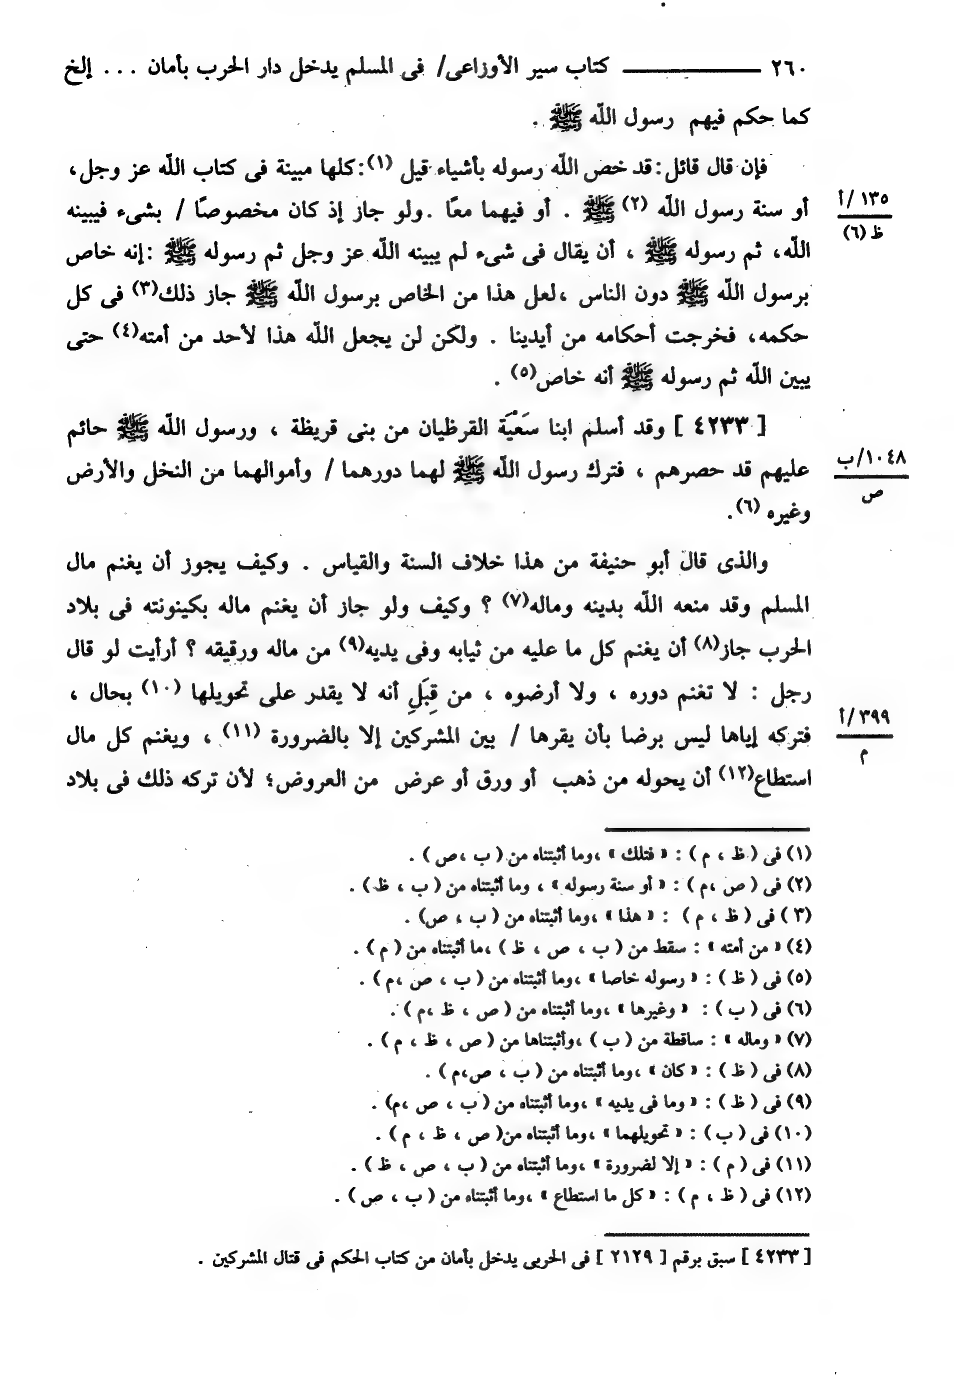 ٢٦٠ ــــــــــ كتاب سير الأوزاعى/ فى المسلم يدخل دار الحرب بأمان ... إلخ
كما حكم فيهم رسول اللّه ﷺ .
فإن قال قائل: قد خص اللّه رسوله بأشياء قيل (١): كلها مبينة فى كتاب اللّه عز وجل،
أو سنة رسول اللّه (٢) ﷺ . أو فيهما معًا . ولو جاز إذ كان مخصوصًا / بشىء فيبينه
١٣٥/أ
ظ (٦)
اللّه، ثم رسوله ﷺ ، أن يقال فى شىء لم يبينه اللّه عز وجل ثم رسوله ﷺ : إنه خاص
برسول اللّه ﷺ دون الناس ، لعل هذا من الخاص برسول اللّه ﷺ جاز ذلك(٣) فى كل
حكمه، فخرجت أحكامه من أيدينا . ولكن لن يجعل اللّه هذا لأحد من أمته(٤) حتى
يبين اللّه ثم رسوله ﷺ أنه خاص(٥) .
[ ٤٢٣٣ ] وقد أسلم ابنا سَعْيَة القرظيان من بنى قريظة ، ورسول اللّه ﷺ حائم
عليهم قد حصرهم ، فترك رسول اللّه ﷺ لهما دورهما / وأموالهما من النخل والأرض
١٠٤٨/ب
ص
وغيره (٦).
والذى قال أبو حنيفة من هذا خلاف السنة والقياس . وكيف يجوز أن يغنم مال
المسلم وقد منعه اللّه بدينه وماله(٧) ؟ وكيف ولو جاز أن يغنم ماله بكينونته فى بلاد
الحرب جاز(٨) أن يغنم كل ما عليه من ثيابه وفى يديه(٩) من ماله ورقيقه ؟ أرأيت لو قال
رجل : لا تغنم دوره ، ولا أرضوه ، من قِبَلِ أنه لا يقدر على تحويلها (١٠) بحال ،
فتركه إياها ليس برضا بأن يقرها / بين المشركين إلا بالضرورة (١١) ، ويغنم كل مال
٣٩٩/أ
م
استطاع(١٢) أن يحوله من ذهب أو ورق أو عرض من العروض؛ لأن تركه ذلك فى بلاد
(١) فى ( ظ ، م ) : « فتلك » ، وما أثبتناه من ( ب ، ص ) .
(٢) فى ( ص ، م ) : « أو سنة رسوله » ، وما أثبتناه من ( ب ، ظ ) .
(٣ ) فى ( ظ ، م ) : « هذا » ، وما أثبتناه من ( ب ، ص) .
(٤) « من أمته » : سقط من ( ب ، ص ، ظ ) ، ما أثبتناه من ( م ) .
(٥) فى ( ظ ) : « رسوله خاصا » ، وما أثبتناه من ( ب ، ص ، م ) .
(٦) فى ( ب ) : « وغيرها » ، وما أثبتناه من ( ص ، ظ ، م ) .
(٧) « وماله » : ساقطة من ( ب ) ، وأثبتناها من ( ص ، ظ ، م ) .
(٨) فى ( ظ ) : « كان » ، وما أثبتناه من ( ب ، ص، م ) .
(٩) فى ( ظ ) : « وما فى يديه » ، وما أثبتناه من ( ب ، ص ، م) .
(١٠) فى ( ب ) : « تحويلهما » ، وما أثبتناه من( ص ، ظ ، م ) .
(١١) فى ( م ) : « إلا لضرورة » ، وما أثبتناه من ( ب ، ص ، ظ ) .
(١٢) فى ( ظ ، م ) : « كل ما استطاع » ، وما أثبتناه من ( ب ، ص ) .
[ ٤٢٣٣ ] سبق برقم [ ٢١٢٩ ] فى الحربى يدخل بأمان من كتاب الحكم فى قتال المشركين .